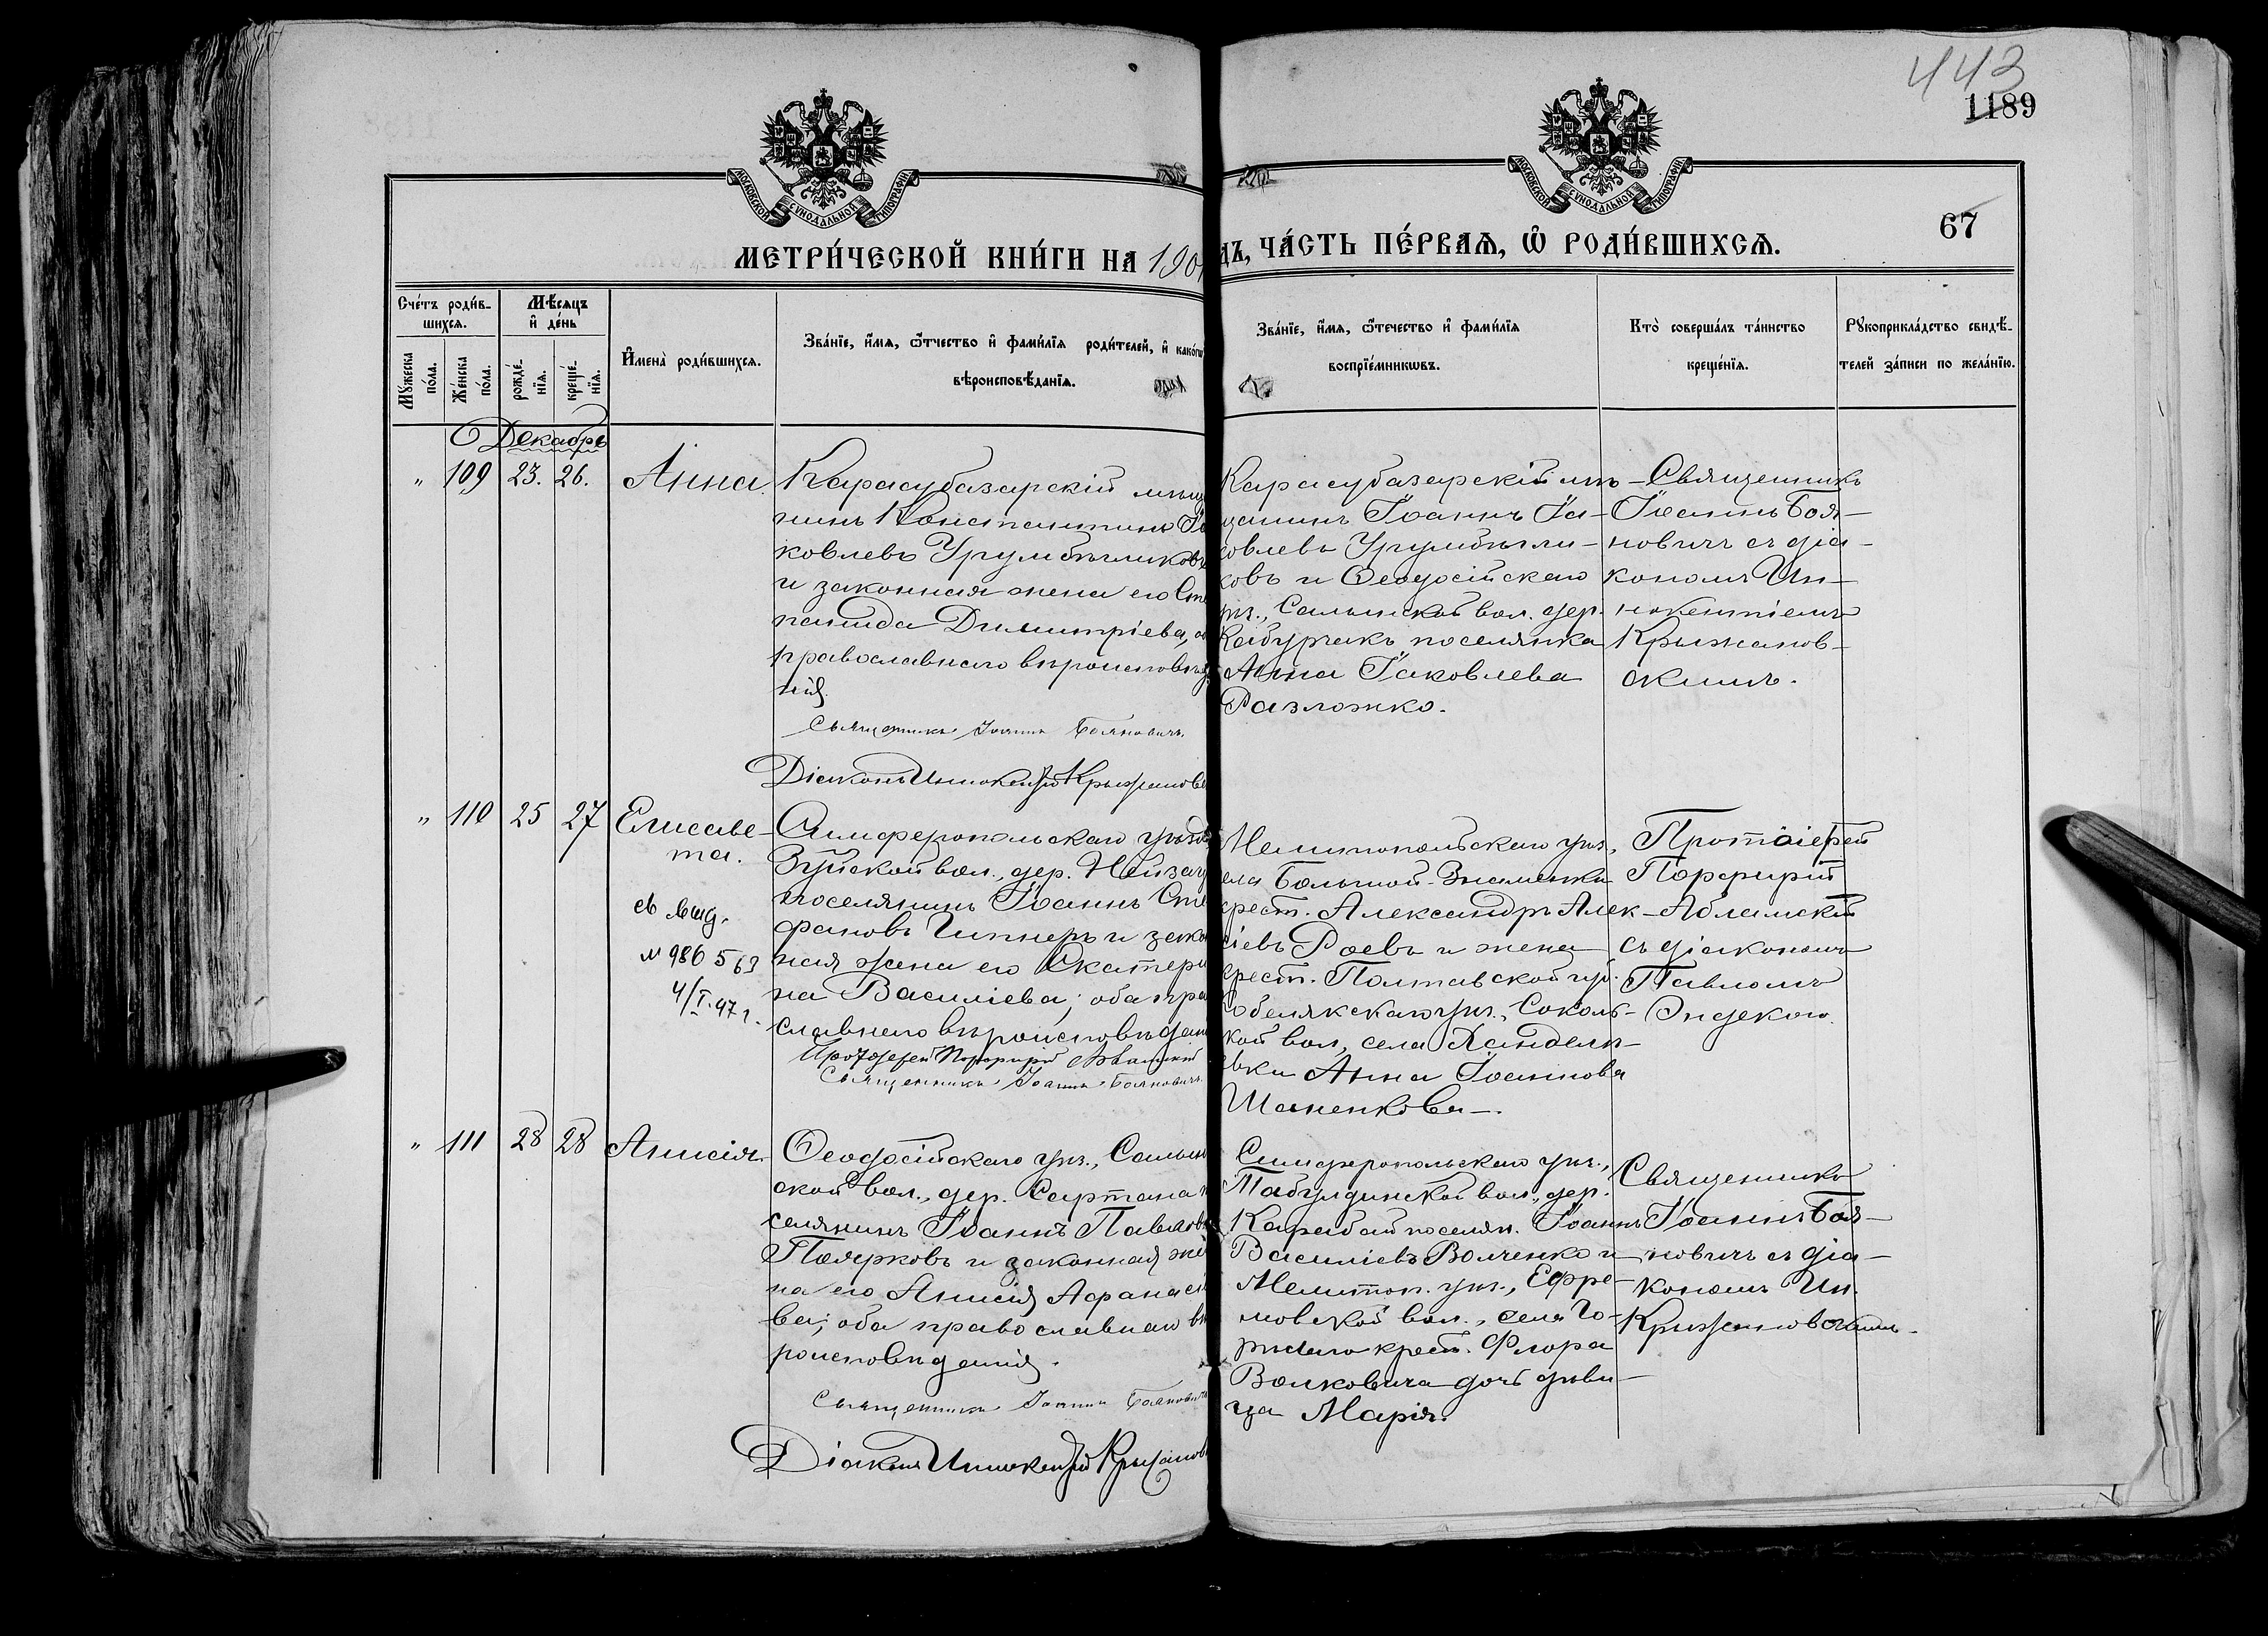 443
1189
67
МОСКОВСКОЙ СѴНОДАЛЬНОЙ ТИПОГРАФІИ
МОСКОВСКОЙ СѴНОДАЛЬНОЙ ТИПОГРАФІИ
МЕТРИ́ЧЕСКОЙ КНИ́ГИ НА 190
ДЪ, ЧА́СТЬ ПЕ́РВАѦ, Ѿ РОДИ́ВШИХСѦ.
Сче́тъ роди́в-
шихсѧ.
Мѣ́сѧцъ
и҆ де́нь
Мꙋ́жеска
по́ла.
Же́нска
по́ла.
рожде́-
нїѧ.
креще́-
нїѧ.
И҆мена̀ роди́вшихсѧ.
Зва́нїе, и҆́мѧ, ѻ҆́тчество и҆ фами́лїѧ роди́телей, и҆ како́гѡ
вѣроисповѣ́данїѧ.
Зва́нїе, и҆́мѧ, ѻ҆те́чество и҆ фами́лїѧ
воспрїе́мникѡвъ.
Кто̀ соверша́лъ та́инство
креще́нїѧ.
Рꙋкоприкла́дство свидѣ́-
телей за́писи по жела́нїю.
Декабрь
" 109 23. 26. Анна.
Карасубазарскій мѣщ
нинъ Константинъ Іа
ковлевъ Урумбѣгликовъ
и законная жена его Сте
панида Димитріева, об
православнаго вѣроисповѣд
нія.
Священникъ Іоаннъ Бояновичъ
Діаконъ Иннокентій Крыжановс
Карасубазарскій мѣ-
щанинъ Іоаннъ Іа-
ковлевъ Урумбѣгли-
ковъ и Ѳеодосійскаго
уѣз., Салынской вол. дер.
Кабурчакъ поселянка
Анна Іаковлева
Разложко.
Священникъ
Іоаннъ Боя-
новичъ съ діа-
кономъ Ин-
нокентіемъ
Крыжанов-
скимъ.
" 110 25 27 Елисаве-
та.
св. выд.
№ 986563
4/I.47 г.
Симферопольскаго уѣзд
Зуйской вол., дер. Нейзац
поселянинъ Іоаннъ Сте
фановъ Гиппнеръ и закон
ная жена его Екатери
на Василіева; оба пра
славнаго вѣроисповѣдан
Протоіерей Порфирій Абламскій
Священникъ Іоаннъ Бояновичъ
Мелитопольскаго уѣз.,
села Большой-Знаменки
крест. Александръ Алек-
сіевъ Роевъ и жена
крест. Полтавской губ.
Кобелякскаго уѣз., Соколь-
кой вол., села
Анна Іоаннова
Шаненкова.
Протоіерей
Порфирій
Абламскій
съ діакономъ
Павломъ
Эндекою.
" 111 28 28 Анисія.
Ѳеодосійскаго уѣз., Салын
ской вол., дер. Сартана п
селянинъ Іоаннъ Павловъ
Поярковъ и законная же
на его Анисія Афанасіе
ва; оба православнаго вѣ
роисповѣданія.
Священникъ Іоаннъ Бояновичъ
Діаконъ Иннокентій Крыжанов
Симферопольскаго уѣз.,
Табулдинской вол., дер.
Карабай поселян. Іоаннъ
Василіевъ Волченко и
Мелитоп. уѣз., Ефре-
мовской вол., села Го-
рѣлаго крест. Флора
Волковича дочь дѣви-
ца Марія.
Священникъ
Іоаннъ Боя-
новичъ съ діа-
кономъ Ин.
Крыжановскимъ.